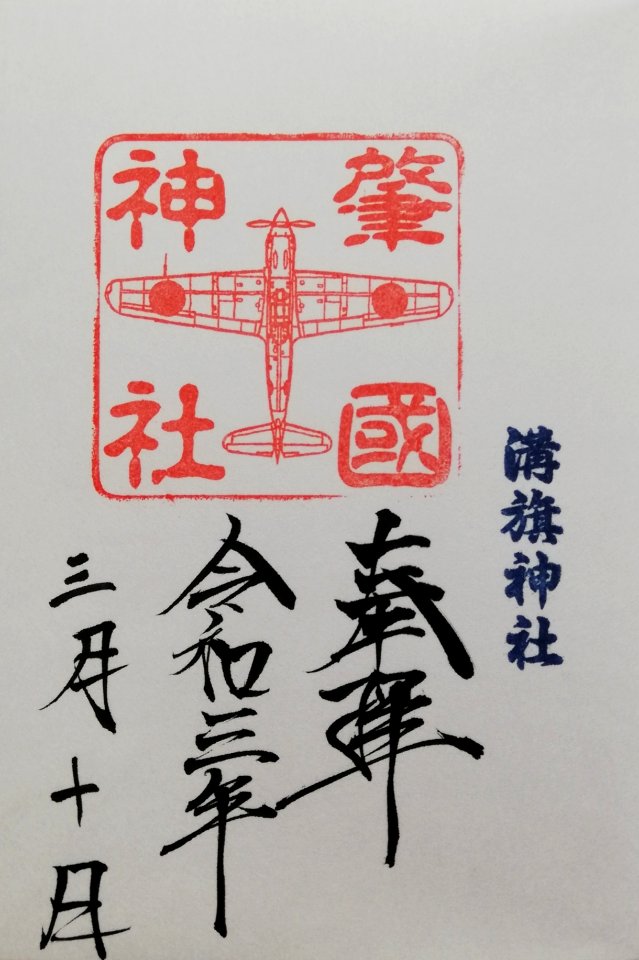 溝旗神社
肇國
神社
奉拝
令和三年
三月十日